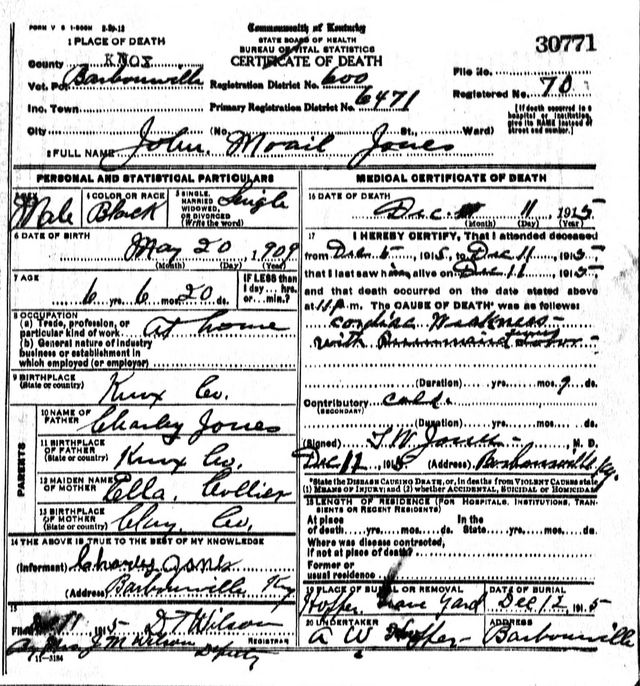 FORM V S 1-500M 2-20-13
Commonwealth of Kentucky
STATE BOARD OF HEALTH
BUREAU OF VITAL STATISTICS
CERTIFICATE OF DEATH
30771
1 PLACE OF DEATH
County KNOX
Vot. Pct. Barbourville
Registration District No. 600
File No.
Inc. Town
Primary Registration District No. 6471
Registered No. 70
City (No. St., Ward)
[If death occurred in a hospital or institution, give its NAME instead of street and number.]
2 FULL NAME John Jones
PERSONAL AND STATISTICAL PARTICULARS
SEX Male
4 COLOR OR RACE Black
5 SINGLE, MARRIED WIDOWED, OR DIVORCED (Write the word) Single
6 DATE OF BIRTH May 20, 1909
(Month) (Day) (Year)
7 AGE 6 yrs. 6 mos. 20 ds.
IF LESS than 1 day... hrs. or...min.?
8 OCCUPATION
(a) Trade, profession, or particular kind of work At home
(b) General nature of industry business or establishment in which employed (or employer)
9 BIRTHPLACE (State or country) Knox Co.
PARENTS
10 NAME OF FATHER Charley Jones
11 BIRTHPLACE OF FATHER (State or country) Knox Co.
12 MAIDEN NAME OF MOTHER Ella Collier
13 BIRTHPLACE OF MOTHER (State or country) Clay Co.
14 THE ABOVE IS TRUE TO THE BEST OF MY KNOWLEDGE
(Informant) Charley Jones
(Address) Barbourville Ky
15
Filed 1915 D T Wilson
J M Wilson Deputy
REGISTRAR
11-3184
MEDICAL CERTIFICATE OF DEATH
16 DATE OF DEATH
Dec. 11 1915
(Month) (Day) (Year)
17 I HEREBY CERTIFY, That I attended deceased
from Dec 5 1915, to Dec 11, 1915
that I last saw him alive on Dec 11 1915
and that death occurred on the date stated above
at 11 P.m. The CAUSE OF DEATH* was as follows:
Cardiac Weakness
with
(Duration) yrs. mos. 9 ds.
Contributory cold
(SECONDARY)
(Duration) yrs. mos. ds.
(Signed) T. W. Jones M. D.
Dec 12 1915 (Address) Barbourville Ky.
*State the DISEASE CAUSING DEATH, or, in deaths from VIOLENT CAUSES state (1) MEANS OF INJURY; and (2) whether ACCIDENTAL, SUICIDAL or HOMICIDAL
18 LENGTH OF RESIDENCE (FOR HOSPITALS, INSTITUTIONS, TRANSIENTS OR RECENT RESIDENTS)
At place of death yrs. mos. ds. In the State yrs. mos. ds.
Where was disease contracted, if not at place of death?
Former or usual residence
19 PLACE OF BURIAL OR REMOVAL
Grave Yard
DATE OF BURIAL
Dec 12 1915
20 UNDERTAKER
A W
ADDRESS
Barbourville